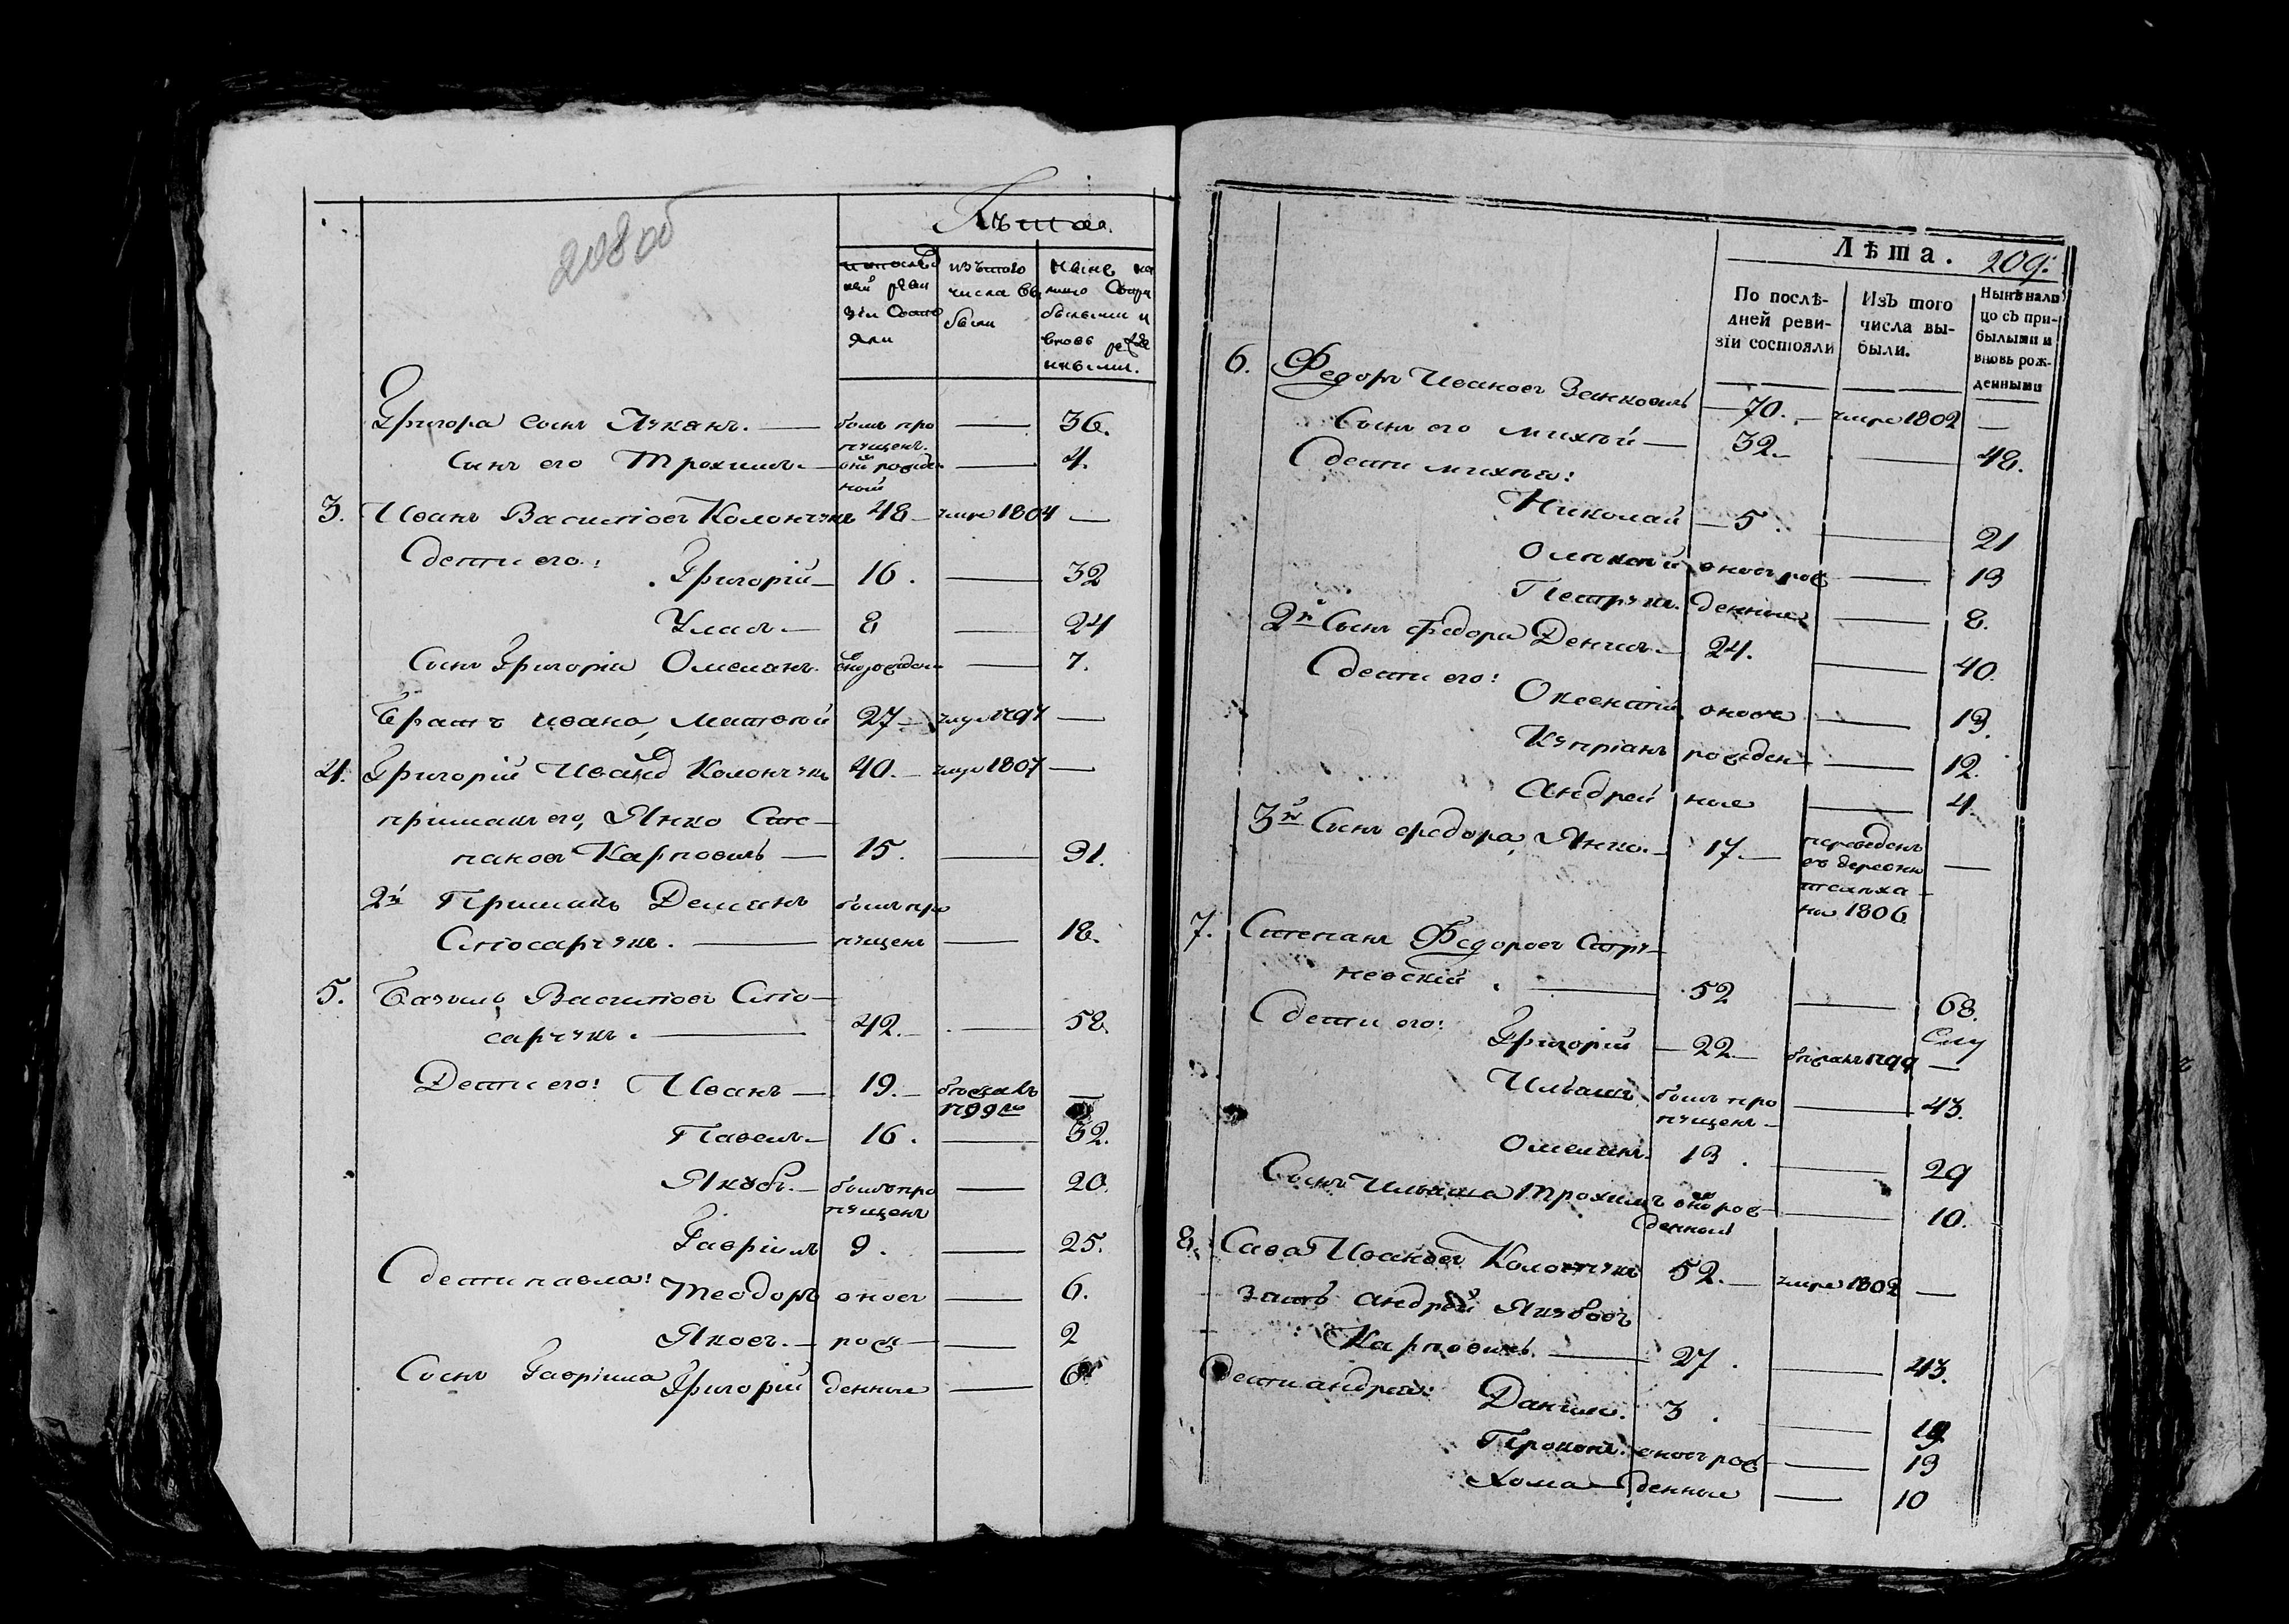 208 об
Лѣта.
и последней ревизіи состояли
изъ того числа выбыли
ныне на лицо с прибылыми и вновь рожденными.
Григора сынъ Лукянъ. — былъ пропущенъ — 36.
Сынъ его Трохимъ — внов рожденной — 4.
3. Иванъ Василіовъ Колончукъ 48 — умре 1804 —
С дети его: Григорій — 16. — 32
Уласъ — 8 — 24
Сынъ Григорія Омелянъ. внов рожден — 7.
Братъ Ивана, Матвей 27 — умре 1797 —
4. Григорій Ивановъ Колончукъ 40. — умре 1807 —
примакъ его, Янко Сте-
пановъ Карповичъ — 15. — 31.
2й Примакъ Демянъ былъ про
Слюсарчукъ. — пущенъ — 18.
5. Базыль Василіовъ Слю-
сарчукъ. — 42. — 58.
Дети его: Иванъ — 19. — 1799го —
Павелъ — 16. — 32.
Якубъ. — былъ пропущенъ — 20.
Гавріилъ 9. — 25.
С дети Павла: Теодоръ вновъ — 6.
Яковъ. — рож — 2
Сынъ Гавріила Григорій денные — 6
Лѣта. 209.
По послѣ-
дней реви-
зіи состояли
Изъ того
числа вы-
были.
Нынѣ нали
цо съ при-
былыми и
вновь рож-
денными
6. Федоръ Ивановъ Зенковичъ — 70. — умре 1802 —
Сынъ его Михей — 32. — 48.
С дети Михея:
Николай — 5. — 21
вновъ рож — 13
Петрукъ. денные — 8.
2й Сынъ Федора Денисъ — 24. — 40.
С дети его: Оксентій вновъ — 13.
Купріанъ рожден — 12.
Андрей ные — 4.
3й Сынъ Федора, Янко. — 17. — переведенъ
въ деревню
на 1806 —
7. Степанъ Федоровъ Стру-
невскій. — 52 — 68.
С дети его: Григорій — 22. — 1799 —
Ильяшъ былъ пропущенъ — 43.
Омелянъ. 13. — 29
Сынъ Ильяша Трохимъ вновъ рожденный — 10.
8. Сава Ивановъ Колончукъ 52. — умре 1802 —
Зять Андрей Якубовъ
Карповичъ. — 27. — 43.
Дети Андрея: Данило. 3. — 19
Прокопъ. вновъ рож — 13
Хома — денные — 10